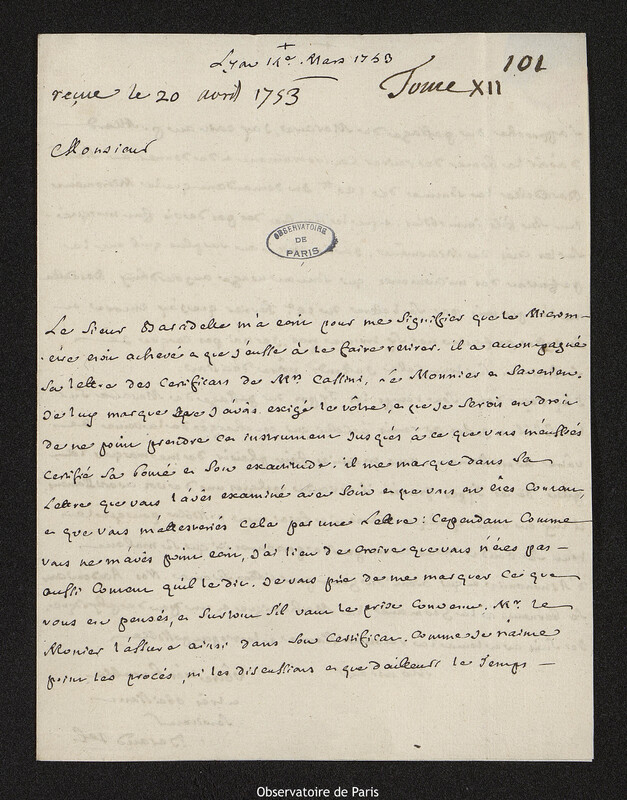 Lyon 14e. Mars 1753
101
reçue le 20 avril 1753
Tome XII
Monsieur
OBSERVATOIRE
DE
PARIS
Le Sieur Baradelle m'a ecrit pour me signifier que le Microm-
-ètre etoit achevé et que j'eusse à le faire retirer. il a accompagné
sa lettre des Certificats de Mrs. Cassini, Le Monnier et Saverien.
Je luy marque que j'avois exigé le vôtre, et que je serois en droit
de ne point prendre cet instrument jusqu'és à ce que vous m'eussiés
Certifié sa bonté et son exactitude. il me marque dans sa
Lettre que vous l'avés examiné avec soin et que vous en êtes Content,
et que vous m'attesteriés cela par une Lettre: Cependant Comme
vous ne m'avés point ecrit, j'ai lieu de croire que vous n'êtes pas-
aussi Content qu'il le dit. Je vous prie de me marquer ce que
vous en pensés, et surtout s'il vaut le prix Convenu. Mr. le
Monier l'assure ainsi dans son Certificat. Comme je n'aime
point les procés, ni les discussions et que d'ailleurs le temps-
Observatoire de Paris